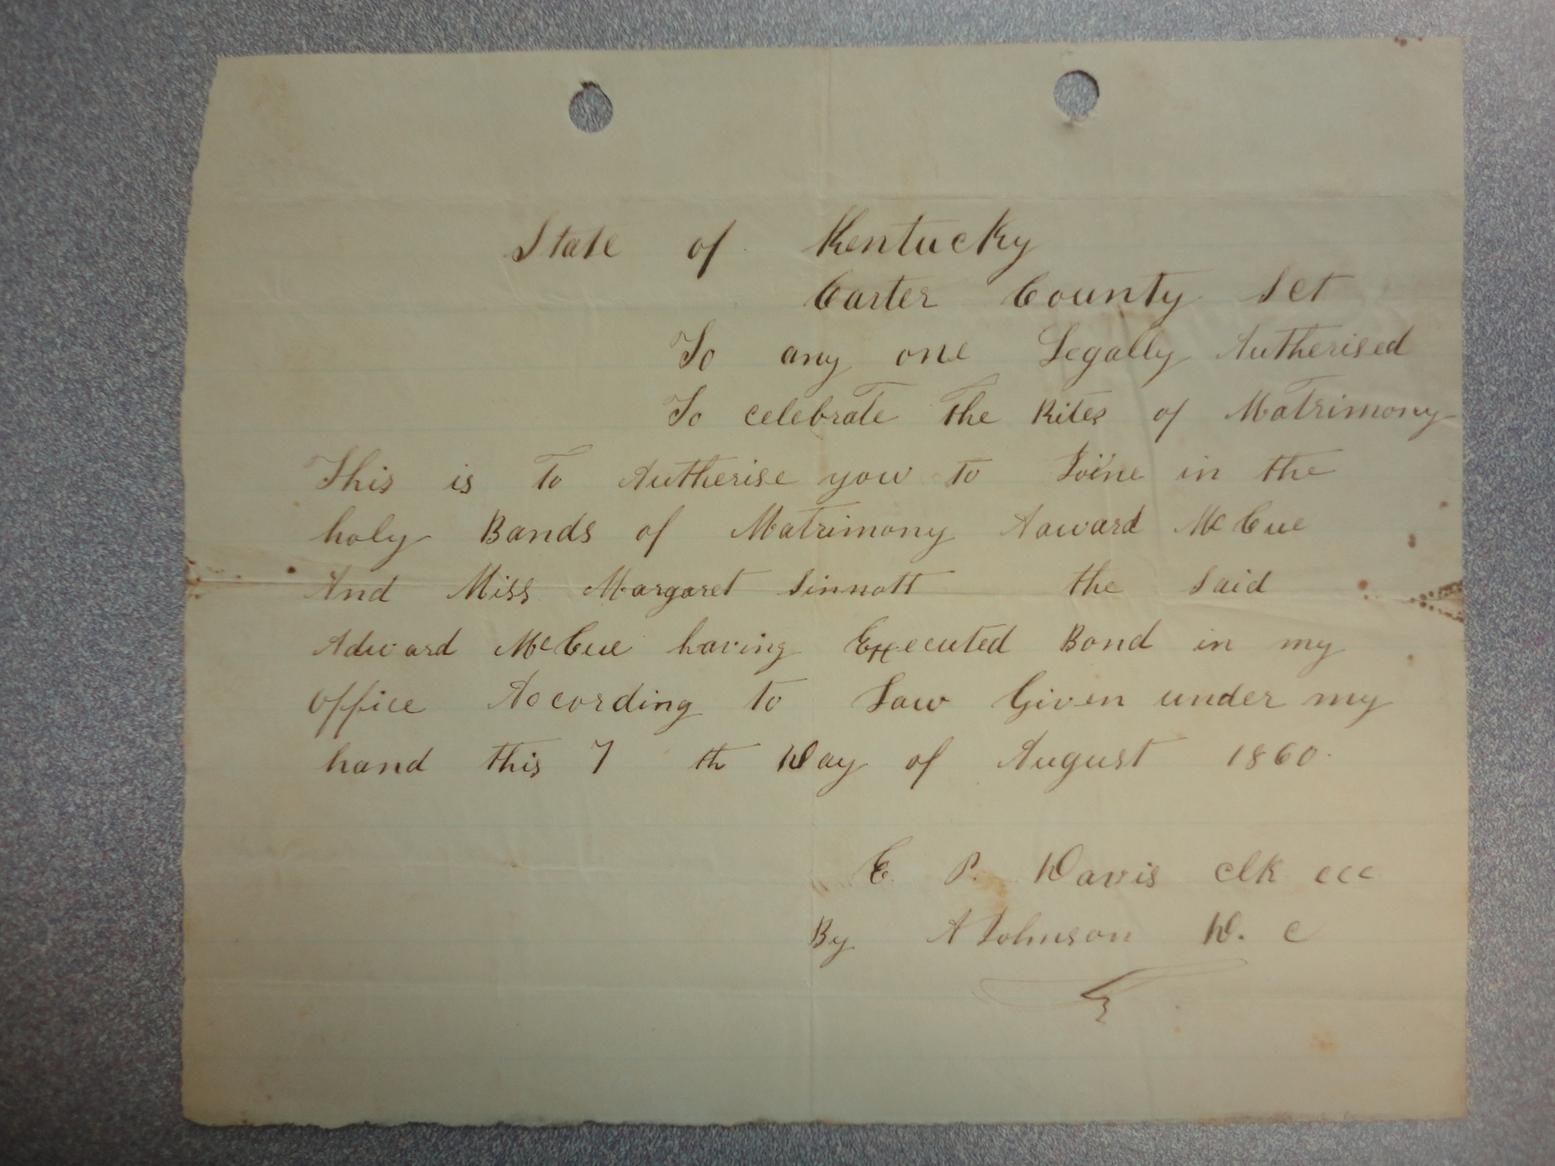 State of Kentucky
Carter County Sct
To any one Legally Autherised
To celebrate the Rites of Matrimony
This is to Autherise you to Joine in the
holy Bands of Matrimony Adward McCue
And Miss Margaret Sinnott the Said
Adward McCue having Executed Bond in my
office According to Law Given under my
hand this 7 th Day of August 1860.
E. P. Davis clk ccc
By A Johnson D. C